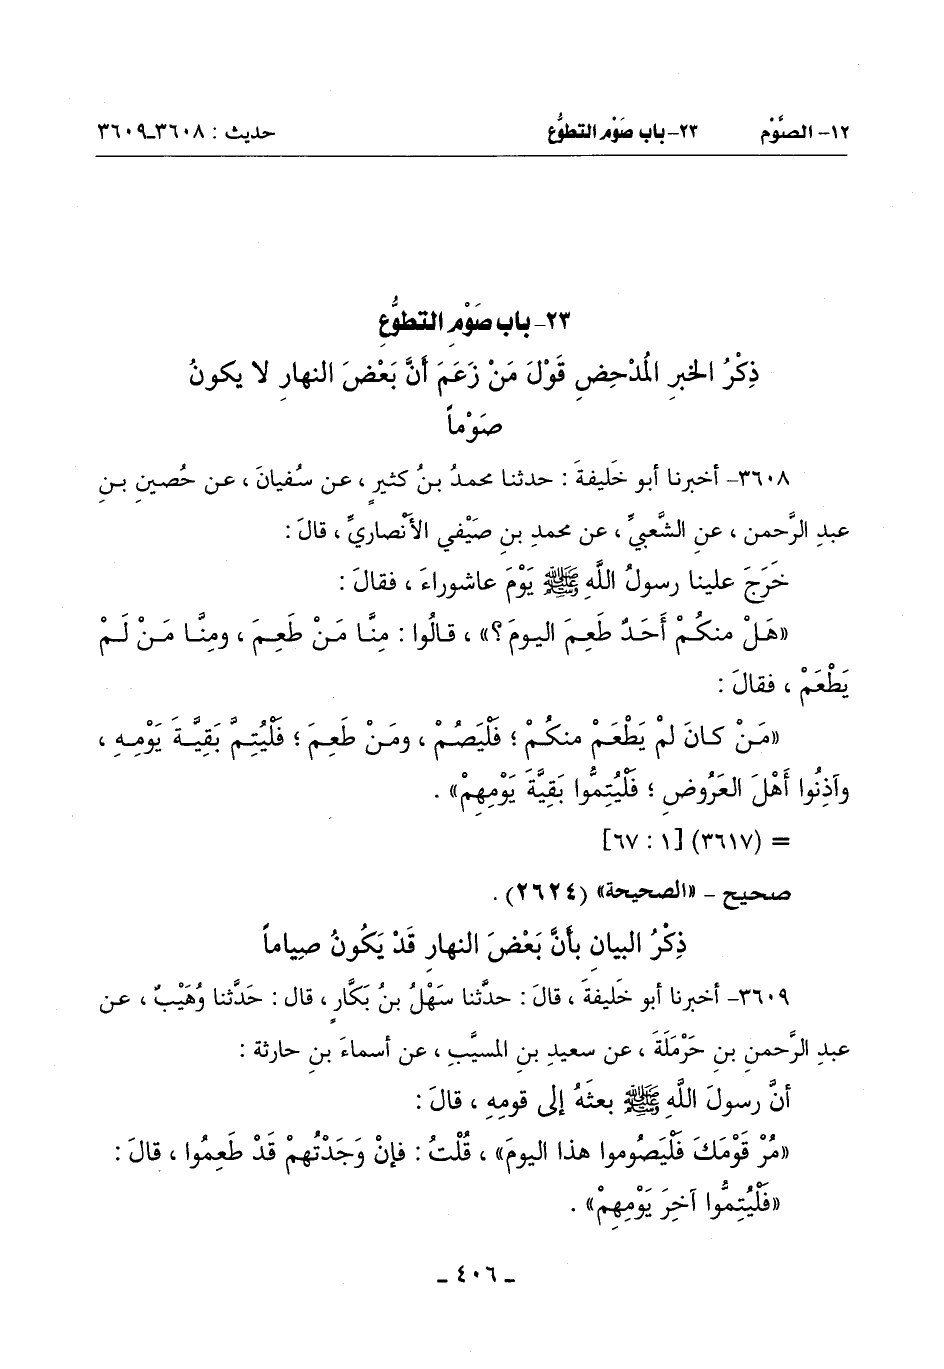 ١٢- الصَّوْم ٢٣- باب صَوْم التطوُّع حديث : ٣٦٠٨-٣٦٠٩
٢٣- باب صَوْمِ التطوُّعِ
ذِكْرُ الخبرِ المُدْحِضِ قَوْلَ مَنْ زَعَمَ أَنَّ بَعْضَ النهارِ لا يكونُ
صَوْماً
٣٦٠٨- أخبرنا أبو خَليفةَ : حدثنا محمدُ بنُ كثيرٍ ، عن سُفيانَ ، عن حُصينِ بنِ
عبدِ الرَّحمن ، عنِ الشَّعبيِّ ، عن محمدِ بنِ صَيْفي الأنْصاريِّ ، قالَ :
خَرَجَ علينا رسولُ اللَّهِ ﷺ يَوْمَ عاشوراءَ ، فقالَ :
«هَلْ منكُمْ أَحَدٌ طَعِمَ اليومَ؟» ، قالُوا : مِنَّا مَنْ طَعِمَ ، ومِنَّا مَنْ لَمْ
يَطْعَمْ ، فقالَ :
«مَنْ كانَ لم يَطْعَمْ منكُمْ ؛ فَلْيَصُمْ ، ومَنْ طَعِمَ ؛ فَلْيُتِمَّ بَقِيَّةَ يَوْمِهِ ،
وآذِنُوا أَهْلَ العَرُوضِ ؛ فَلْيُتِمُّوا بَقِيَّةَ يَوْمِهِمْ» .
= (٣٦١٧) [١ : ٦٧]
صحيح - «الصحيحة» (٢٦٢٤) .
ذِكْرُ البيانِ بأنَّ بَعْضَ النهارِ قَدْ يَكُونُ صِياماً
٣٦٠٩- أخبرنا أبو خَليفةَ ، قالَ : حدَّثنا سَهْلُ بنُ بَكَّارٍ ، قال : حَدَّثنا وُهَيْبٌ ، عن
عبدِ الرَّحمنِ بنِ حَرْمَلَةَ ، عن سعيدِ بنِ المسيَّبِ ، عن أسماءَ بنِ حارثة :
أنَّ رسولَ اللَّهِ ﷺ بعثَهُ إلى قومِهِ ، قالَ :
«مُرْ قَوْمَكَ فَلْيَصُوموا هذا اليومَ» ، قُلْتُ : فإنْ وَجَدْتُهمْ قَدْ طَعِمُوا ، قالَ :
«فَلْيُتِمُّوا آخِرَ يَوْمِهِمْ» .
- ٤٠٦ -